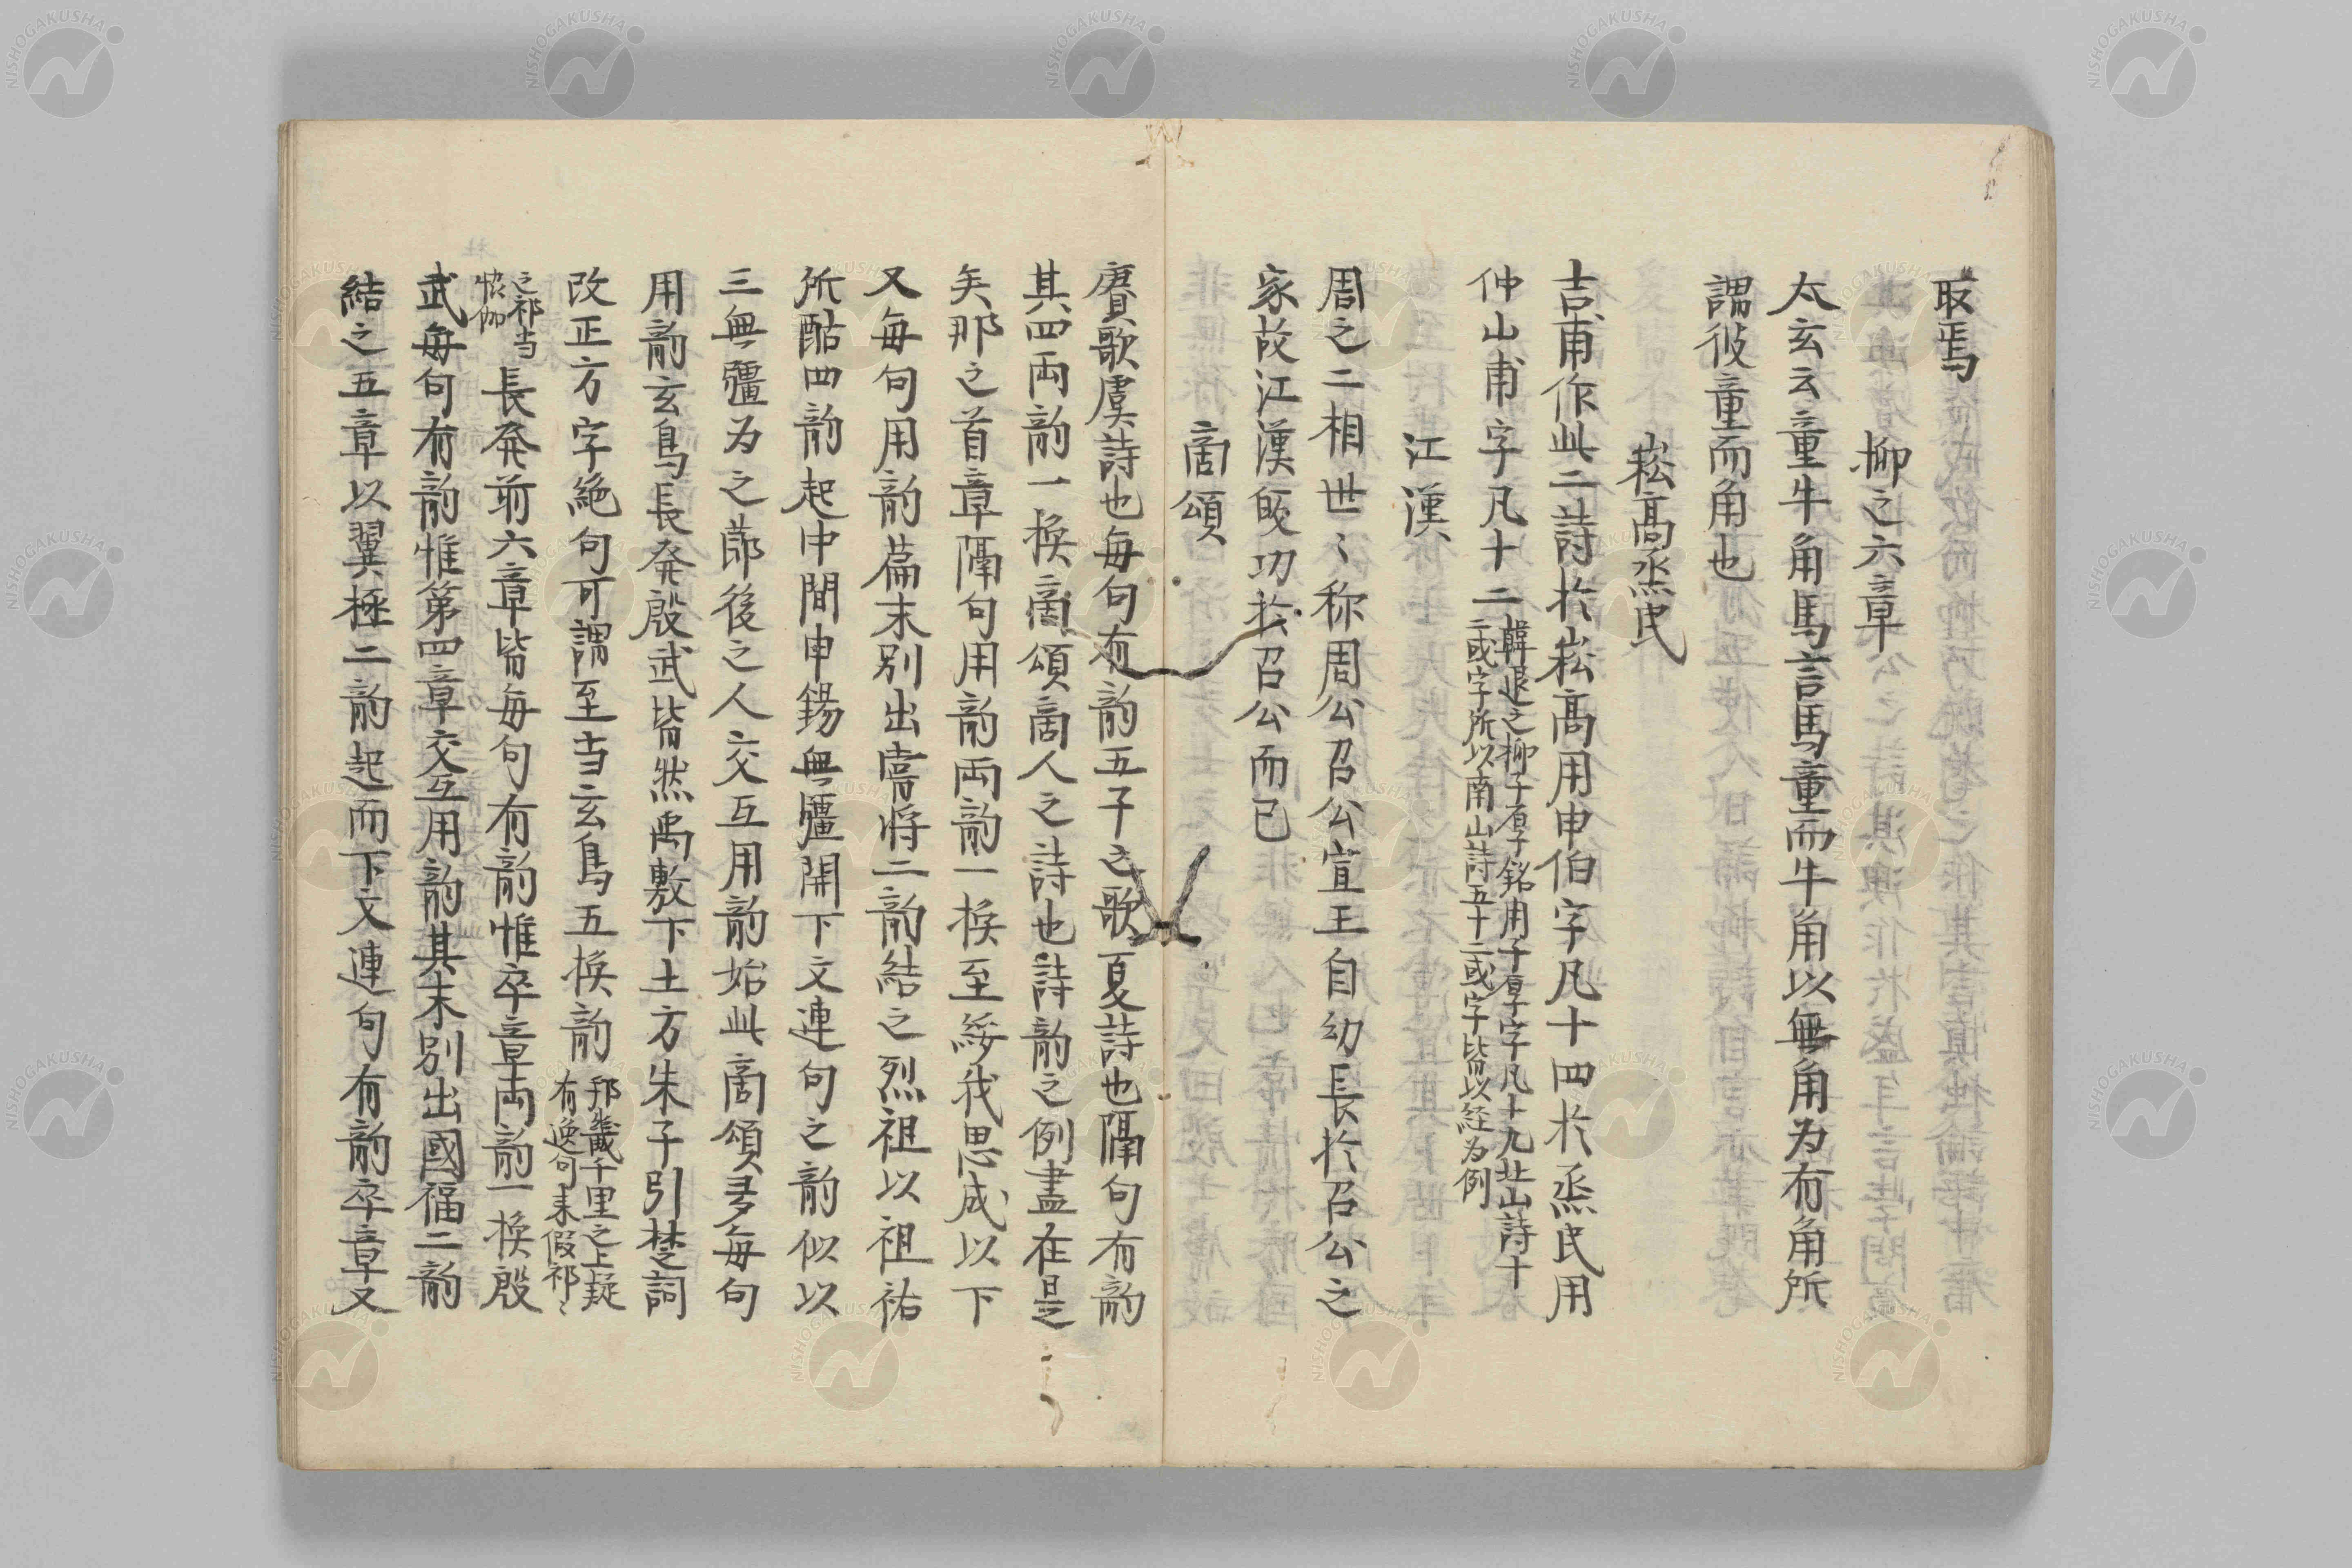 取焉
抑之六章
太玄云童牛角馬言馬童而牛角以無角为有角所
謂彼童而角也
崧高烝民
吉甫作此二詩於崧高用申伯字凡十四於烝民用
仲山甫字凡十二韓退之柳子厚銘用子厚字凡十九北山詩十
二或字所以南山詩五十二或字皆以経为例
江漢
周之二相世〻称周公召公宣王自幼長於召公之
家故江漢皈功於召公而已
商頌
賡歌虞詩也毎句有韵五子之歌夏詩也隔句有韵
其四両韵一換商頌商人之詩也詩韵之例盡在是
矣那之首章隔句用韵両韵一換至綏我思成以下
又毎句用韵篇末別出甞将二韵結之烈祖以祖祐
所酤四韵起中間申錫無疆開下文連句之韵似以
三無疆为之莭後之人交互用韵始此商頌多毎句
用韵玄鳥長発殷武皆然禹敷下土方朱子引楚詞
改正方字絶句可謂至当玄鳥五換韵邦畿千里之上疑
有逸句来假祁〻
之祁当
長発前六章皆毎句有韵惟卒章両韵一換殷
武毎句有韵惟第四章交互用韵其末別出國福二韵
結之五章以翼極二韵起而下文連句有韵卒章又
NISHOGAKUSHA